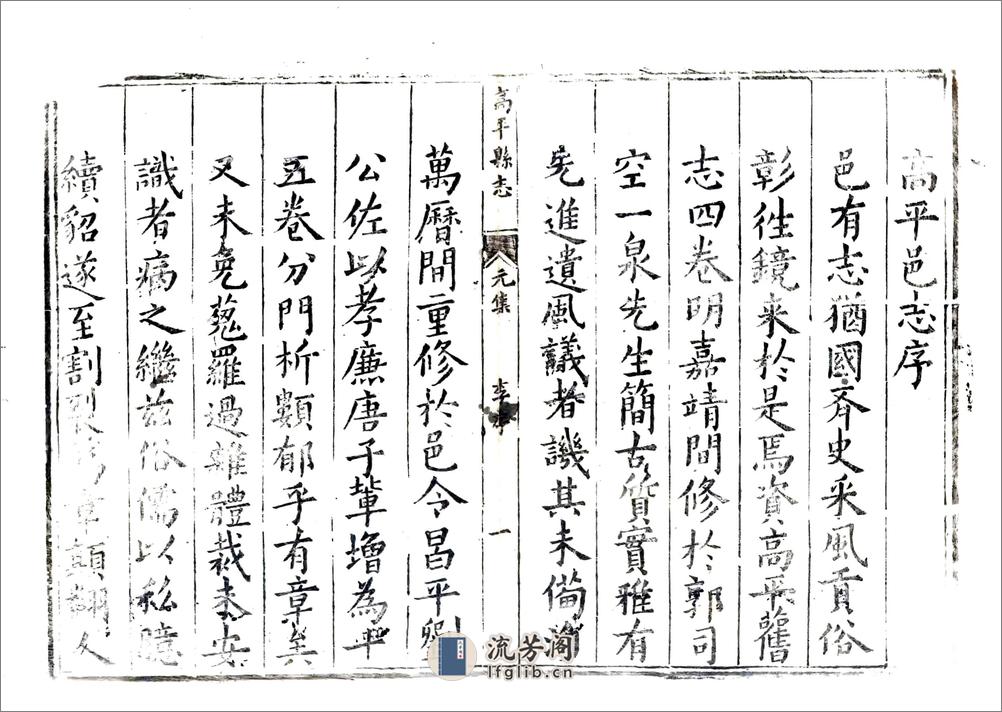 高平邑志序
邑有志猶國斉史采風貢俗
彰徃鏡来於是焉資高平舊
志四卷明嘉靖間修於郭司
空一泉先生簡古質實雅有
先進遺風議者譏其未偹
高平縣志 元集 李序 一
萬曆間重修於邑令昌平
公佐以孝廉唐子輩增為
五卷分門析類郁乎有章矣
又未免蒐羅過雜體裁未安
識者病之繼兹俗儒以私臆
續貂遂至割裂 章顛翻文
流芳阁
lfglib.cn